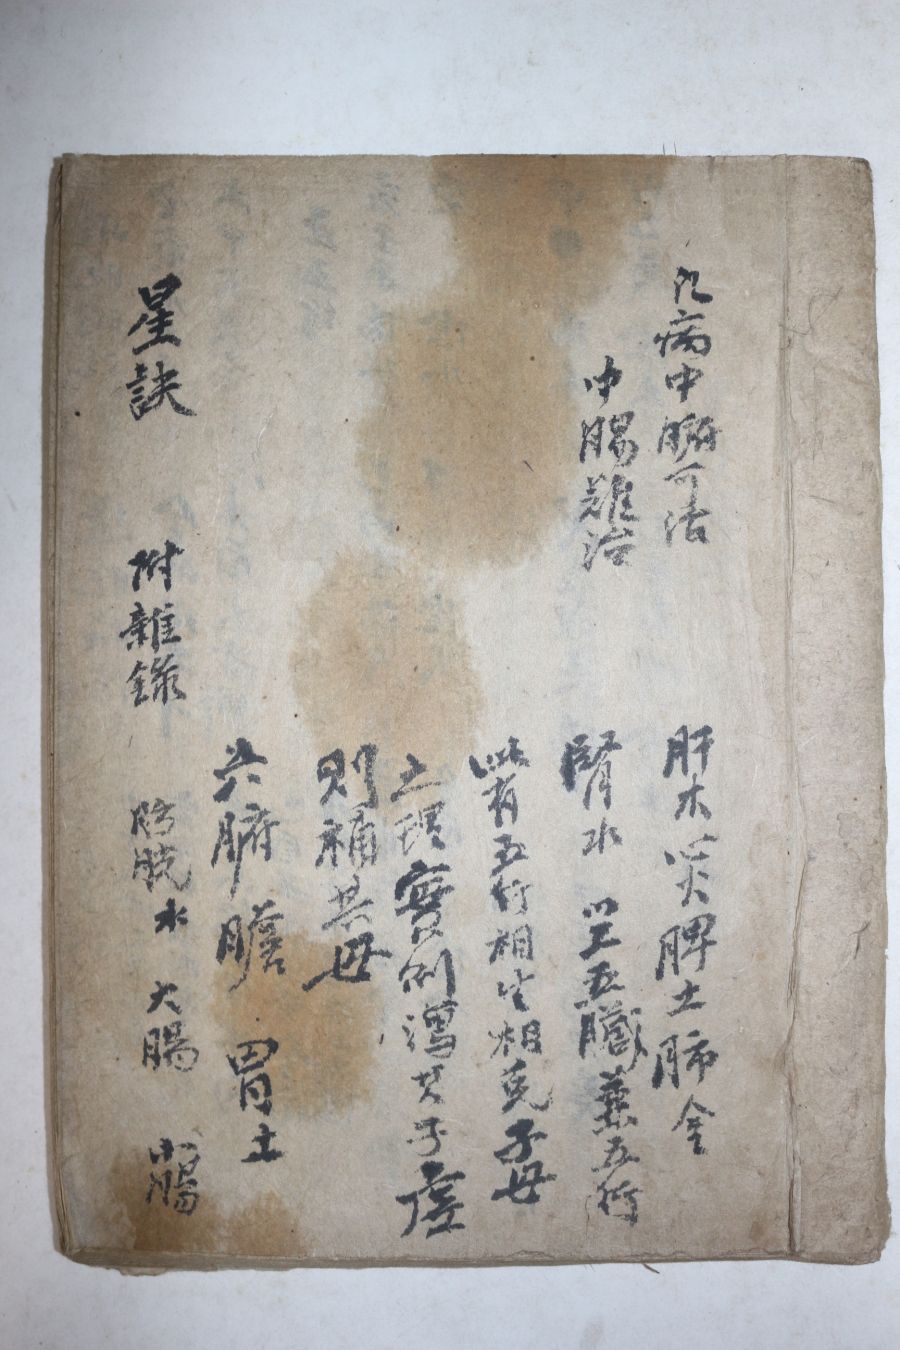 凡病中腑可治
中腸難治
肝木心火脾土肺金
腎水 五臟兼五行
皆有五行相生相克子母
土理實則瀉其子虛
則補其母
六腑 膽 胃土
星訣 附雜錄
膀胱水 大腸 小腸